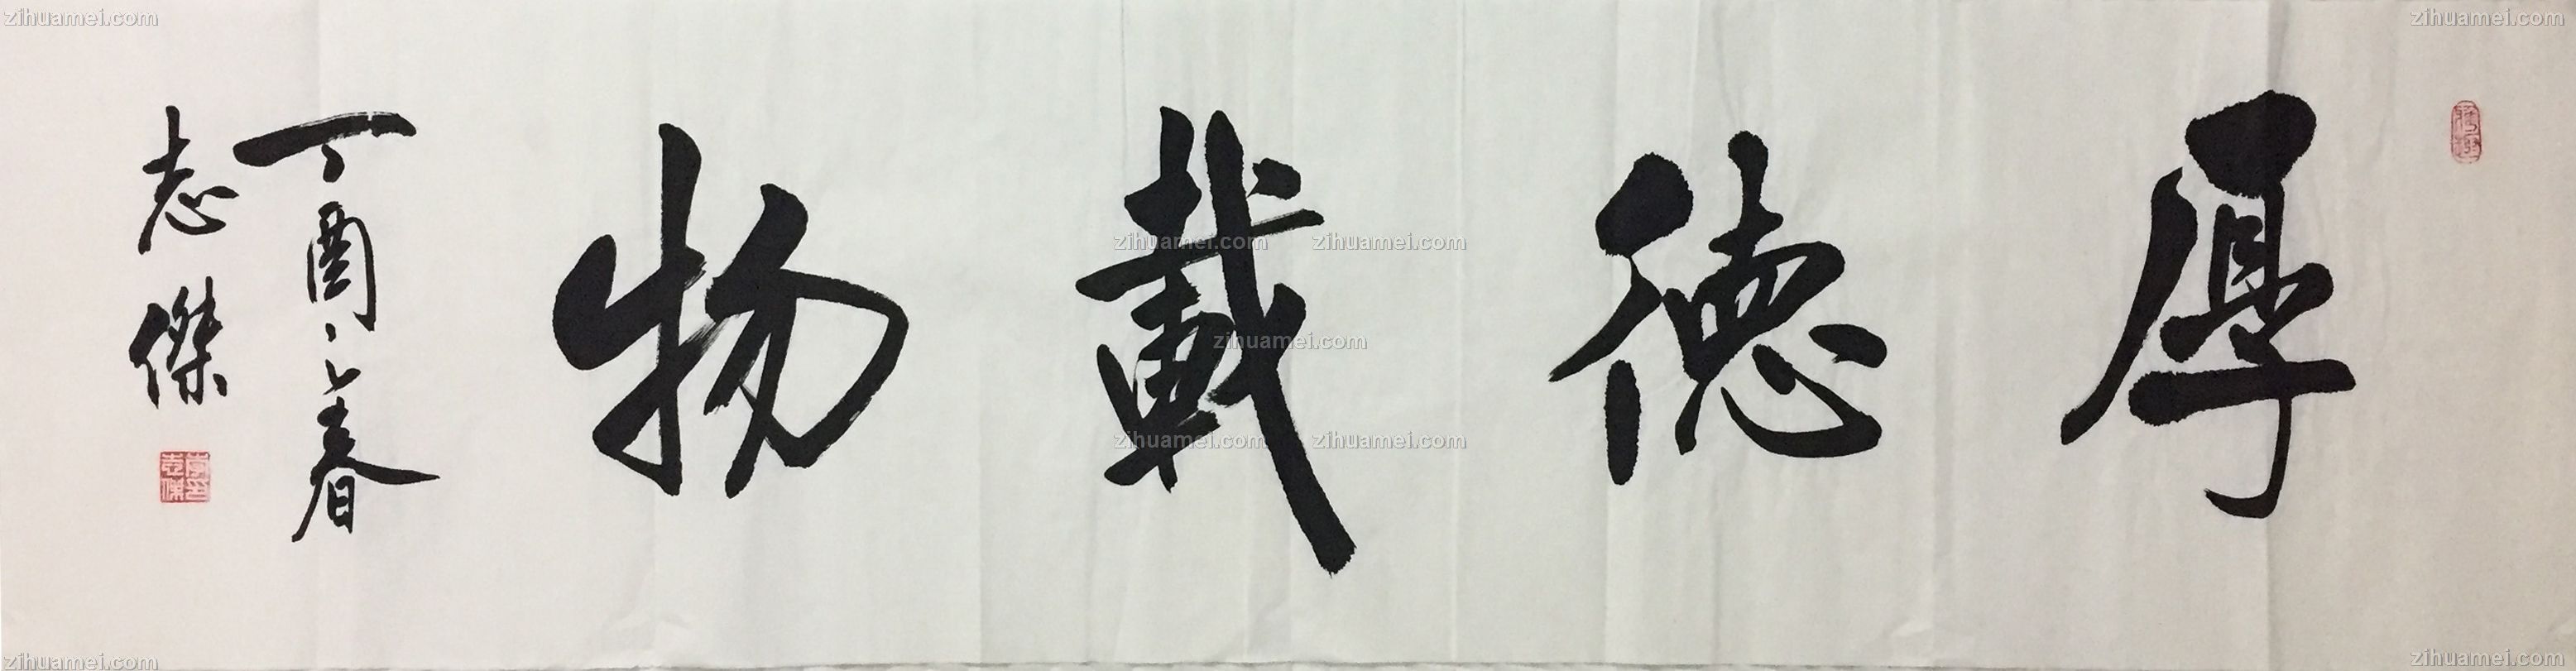 厚德載物
丁酉之春
志傑
zihuamei.com
zihuamei.com
zihuamei.com
zihuamei.com
zihuamei.com
zihuamei.com
zihuamei.com
zihuamei.com
zihuamei.com